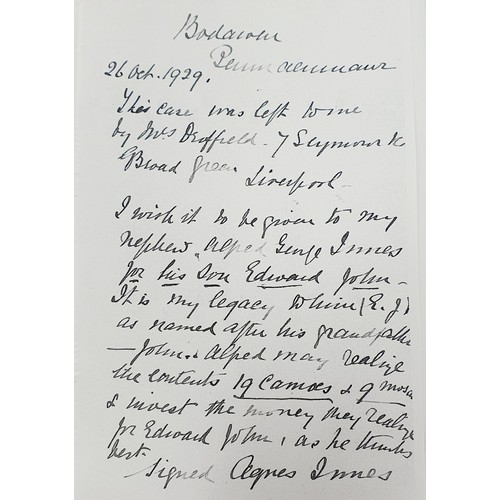 Bodawen
Penmaenmawr
26 Oct. 1929.
This case was left to me
by Mrs Driffield - 7 Seymour
Broad Green
Liverpool -
I wish it to be given to my
nephew, Alfred George Innes
for his Son Edward John -
It is my legacy to him (E. J)
as named after his grandfather
- John. Alfred may realize
the contents 19 Cameos & 9 mosaic
& invest the money they realize
for Edward John, as he thinks
best.
Signed Agnes Innes